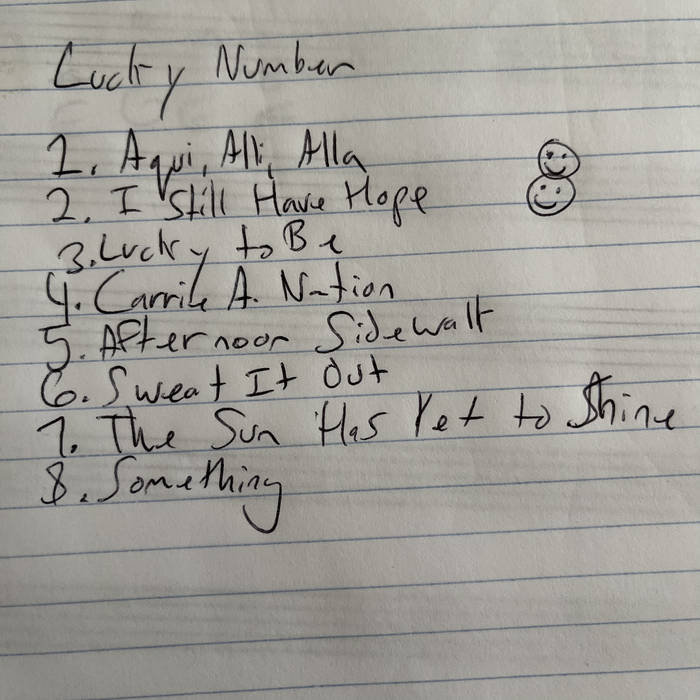 Lucky Number
1. Aqui, Alli, Alla
2. I Still Have Hope
3. Lucky to Be
4. Carrie A. Nation
5. Afternoon Sidewalk
6. Sweat It Out
7. The Sun Has Yet to Shine
8. Something